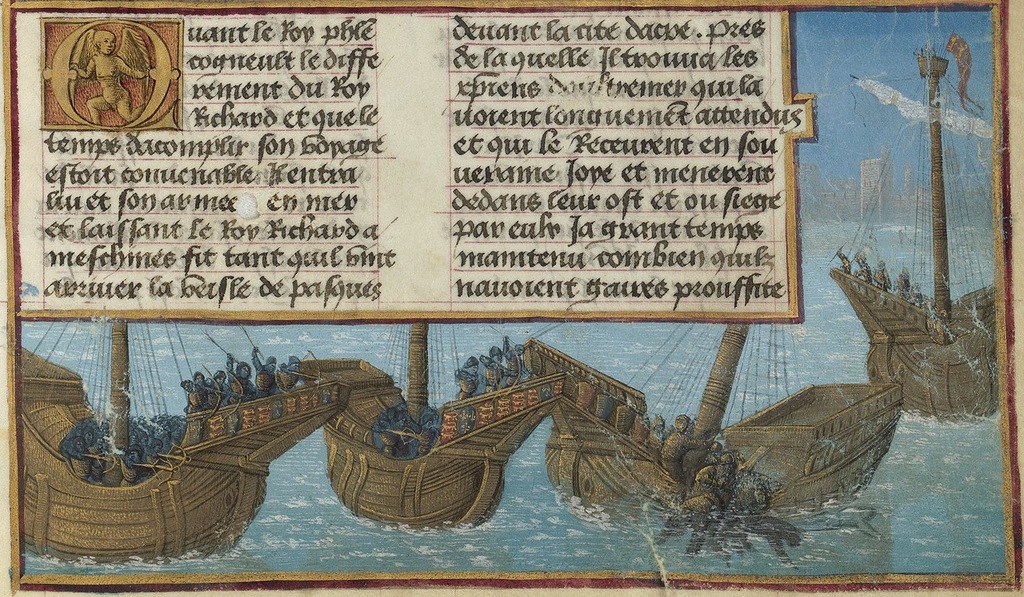 Quant le Roy phle
cogneult le diffe
rement du Roy
Richard et que le
temps dacomplir son voyage
estoit convenable Il entra
luy et son armee en mer
et laissant le Roy Richard a
meschines fit tant quil vint
arriver la veisle de pasques
devant la cite dacre. Pres
de la quelle Il trouva les
xpiens doultremer qui la
voient longuement attendus
et qui le Receurent en sou
veraine Joye et menerent
dedans leur ost et ou siege
par eulx Ja grant temps
maintenu combien quilz
navoient gaires prouffite